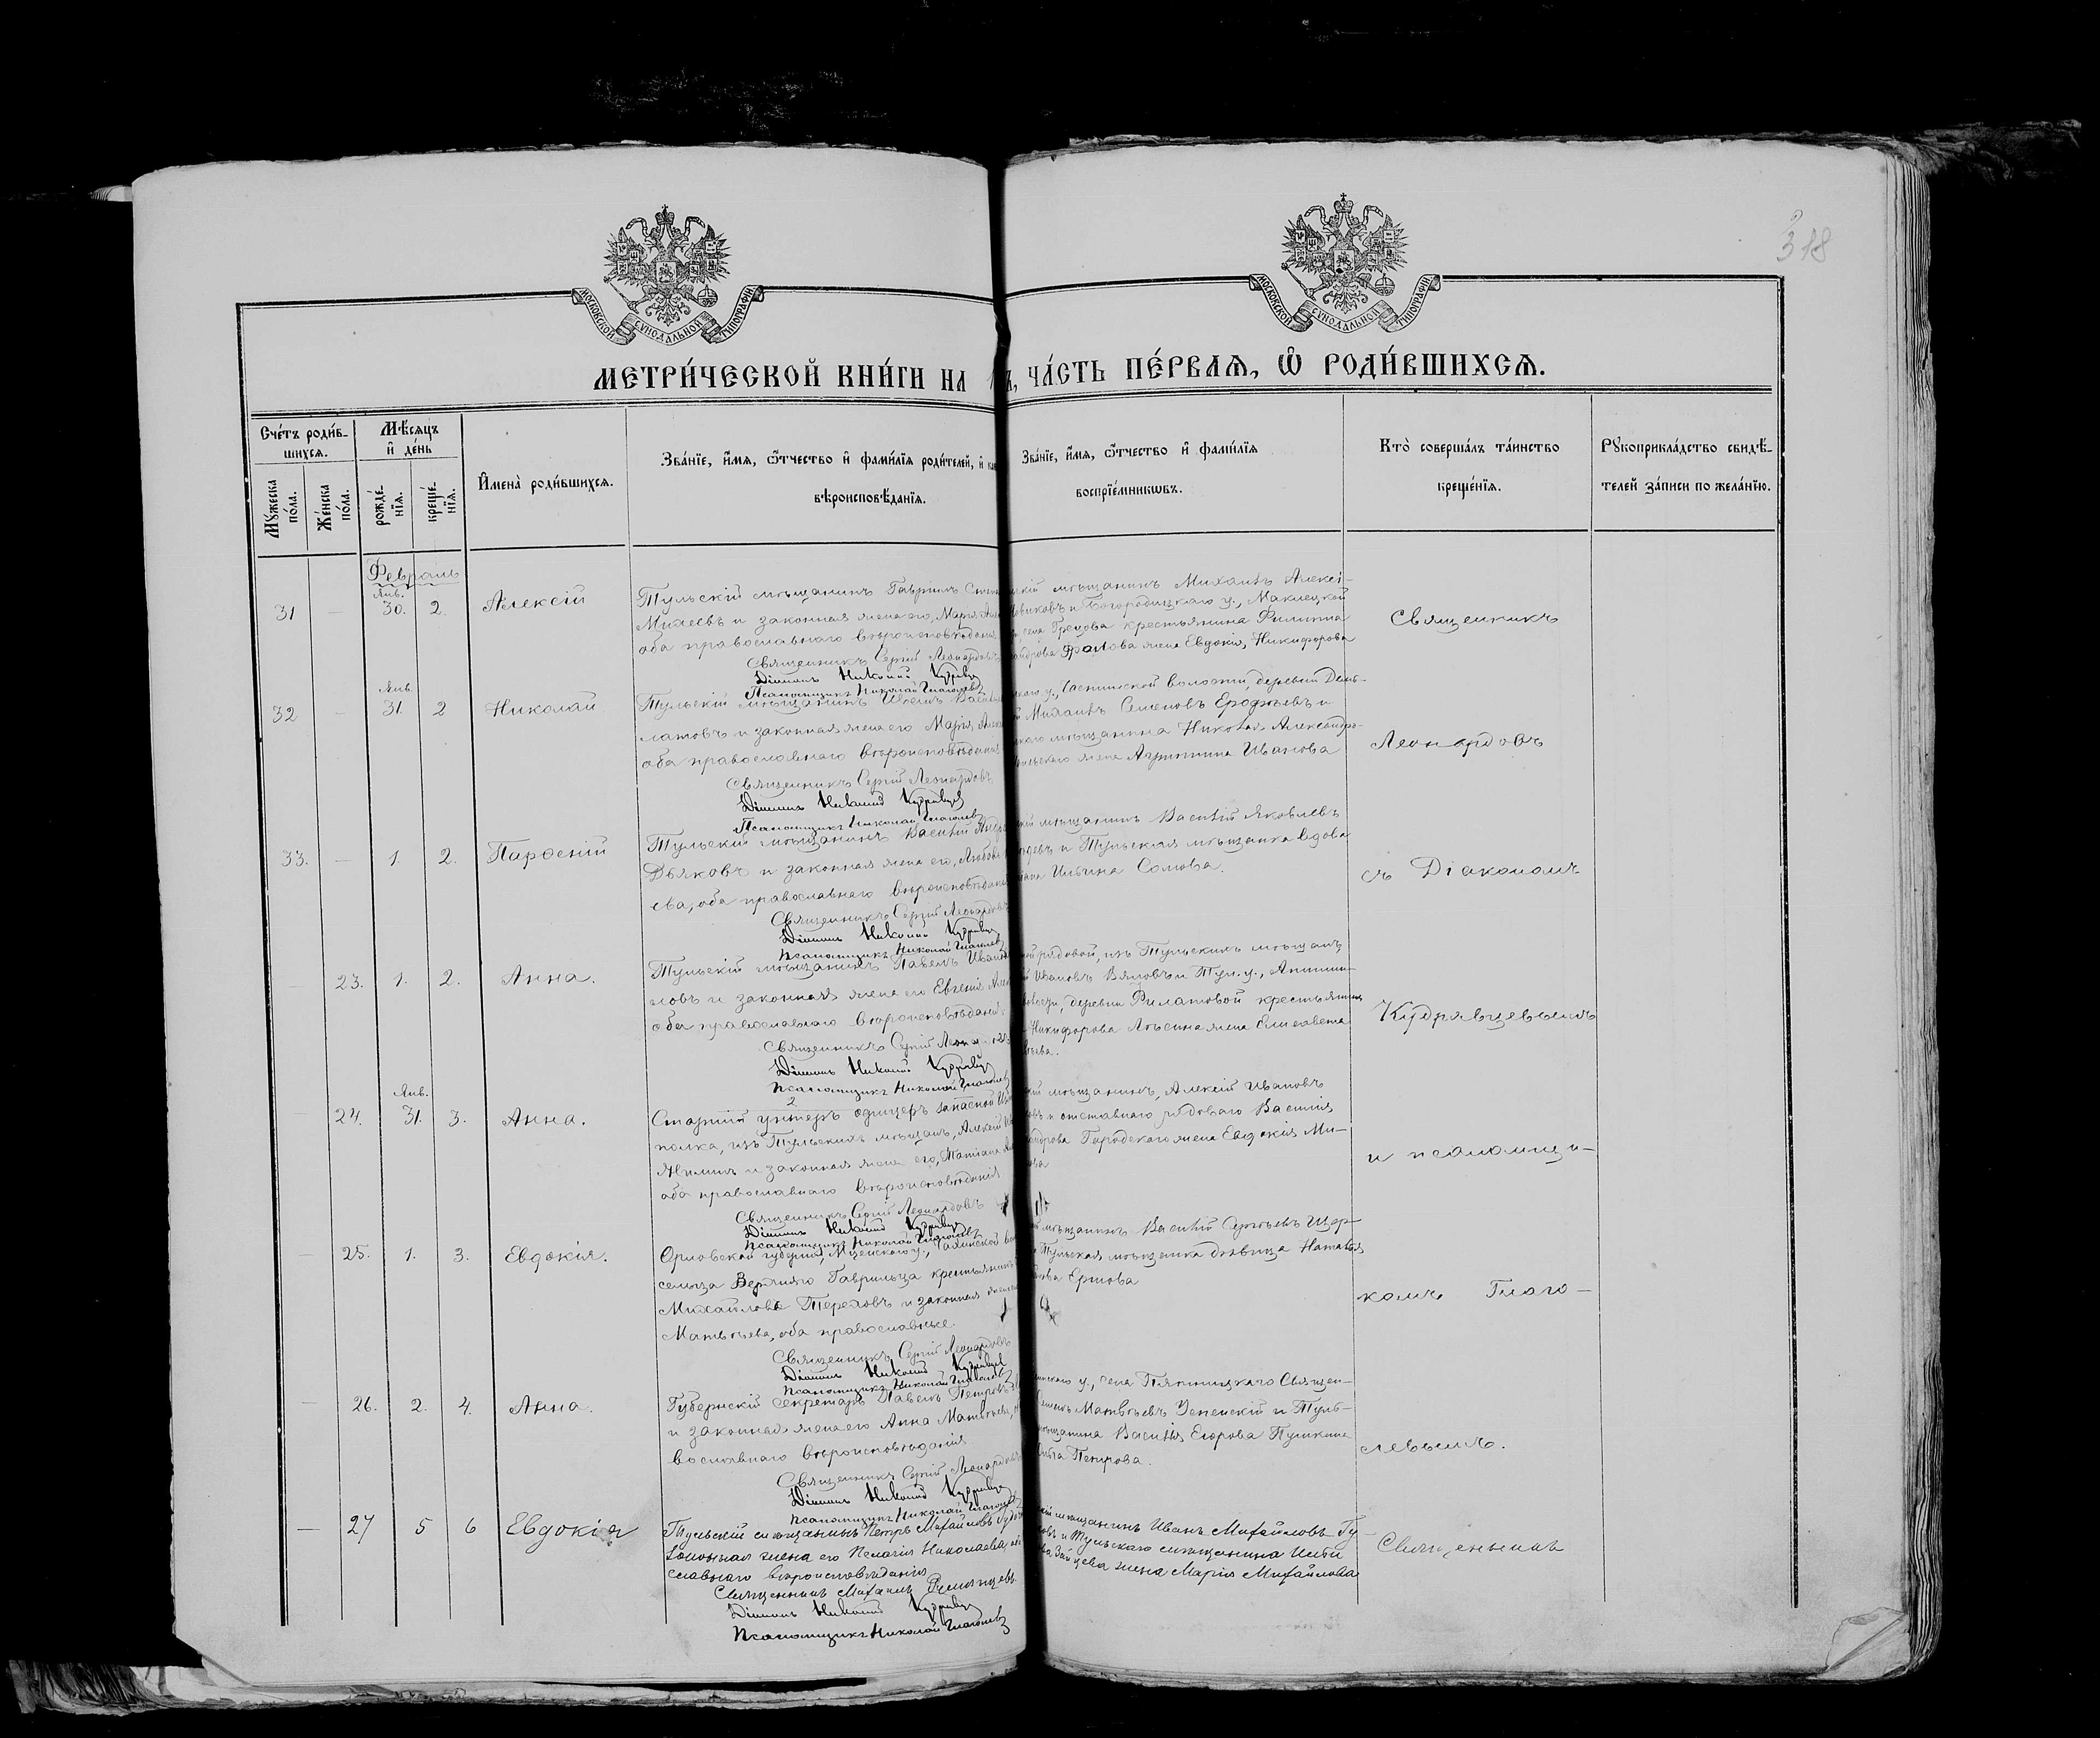 318
МОСКОВСКОЙ СѴНОДАЛЬНОЙ ТИПОГРАФІИ
МОСКОВСКОЙ СѴНОДАЛЬНОЙ ТИПОГРАФІИ
МЕТРИ́ЧЕСКОЙ КНИ́ГИ НА
ЧА́СТЬ ПЕ́РВАѦ, Ѽ РОДИ́ВШИХСѦ.
Сче́тъ роди́в-
шихсѧ.
Мѣ́сѧцъ
и҆ де́нь
Мꙋ́жеска по́ла.
Же́нска по́ла.
рожде́-
нїѧ.
креще́-
нїѧ.
И҆мена̀ роди́вшихсѧ.
Зва́нїе, и҆́мѧ, ѻ҆́тчество и҆ фами́лїѧ роди́телей, и҆
вѣроисповѣ́данїѧ.
Зва́нїе, и҆́мѧ, ѻ҆́тчество и҆ фами́лїѧ
воспрїе́мникѡвъ.
Кто̀ соверша́лъ та́инство
креще́нїѧ.
Рꙋкоприкла́дство свидѣ́-
телей за́писи по жела́нїю.
Февраль
31 – Янв. 30. 2. Алексій
Тульскій мѣщанинъ Гавріилъ
и законная жена его, Марія
оба православнаго вѣроисповѣданія
Священникъ Сергій Леонардовъ
Діаконъ Николай Кудрявцев
Псаломщикъ Николай Глаголев
мѣщанинъ Михаилъ Алексѣ-
и Богородицкаго у.,
села Грецова крестьянина Филиппа
жена Евдокія Никифорова
Священникъ
32 – Янв. 31. 2 Николай
Тульскій мѣщанинъ
латовъ и законная жена его Марія
оба православнаго вѣроисповѣданія
Священникъ Сергій Леонардовъ
Діаконъ Николай Кудрявцев
Псаломщикъ Николай Глаголев
волости, деревни
Михаилъ Семеновъ Ерофѣевъ и
мѣщанина Николая Александро-
жена Агриппина Иванова
Леонардовъ
33. – 1. 2. Парѳеній
Тульскій мѣщанинъ Василій
Дьяковъ и законная жена его, Любовь
ева, оба православнаго вѣроисповѣданія
Священникъ Сергій Леонардовъ
Діаконъ Николай Кудрявцев
Псаломщикъ Николай Глаголев
мѣщанинъ Василій Яковлевъ
и Тульская мѣщанка вдова
Ильина Сомова.
съ Діакономъ
– 23. 1. 2. Анна.
Тульскій мѣщанинъ Павелъ
ловъ и законная жена его Евгенія
оба православнаго вѣроисповѣданія
Священникъ Сергій Леонардовъ
Діаконъ Николай Кудрявцев
Псаломщикъ Николай Глаголев
рядовой, изъ Тульскихъ мѣщанъ
Ивановъ Вяловъ и Тул. у.,
деревни Филатовой крестьянина
Никифорова жена Елисавета
Кудрявцевымъ
– 24. Янв. 31. 3. Анна.
Старшій унтеръ офицеръ запасной
полка, изъ Тульскихъ мѣщанъ, Алексій
и законная жена его, Татіана
оба православнаго вѣроисповѣданія
Священникъ Сергій Леонардовъ
Діаконъ Николай Кудрявцев
Псаломщикъ Николай Глаголев
мѣщанинъ, Алексій Ивановъ
и отставнаго рядоваго Василія
Городскаго жена Евдокія Ми-
и псаломщи-
– 25. 1. 3. Евдокія.
Орловской губерніи, Мценскаго у.,
сельца Верхняго Гаврильца крестьянинъ
Михайловъ Тереховъ и законная жена
Матвѣева, оба православные.
Священникъ Сергій Леонардовъ
Діаконъ Николай Кудрявцев
Псаломщикъ Николай Глаголев
мѣщанинъ Василій Сергѣевъ
Тульская мѣщанка дѣвица Наталья
Ершова
комъ Глаго-
– 26. 2. 4. Анна.
Губернскій секретарь Павелъ Петровъ
и законная жена его Анна Матвѣева,
вославнаго вѣроисповѣданія
Священникъ Сергій Леонардовъ
Діаконъ Николай Кудрявцев
Псаломщикъ Николай Глаголев
у., села Пятницкаго Священ-
Матвѣевъ Успенскій и Туль-
мѣщанина Василія Егорова Пушкина
Петрова.
левымъ.
– 27 5 6 Евдокія
Тульскій мѣщанинъ Петръ Михайловъ
законная жена его Пелагія Николаева,
славнаго вѣроисповѣданія
Священникъ Михаилъ Румянцевъ
Діаконъ Николай Кудрявцев
Псаломщикъ Николай Глаголев
мѣщанинъ Иванъ Михайловъ Гу-
и Тульскаго мѣщанина
Зайцева жена Марія Михайлова
Священникъ